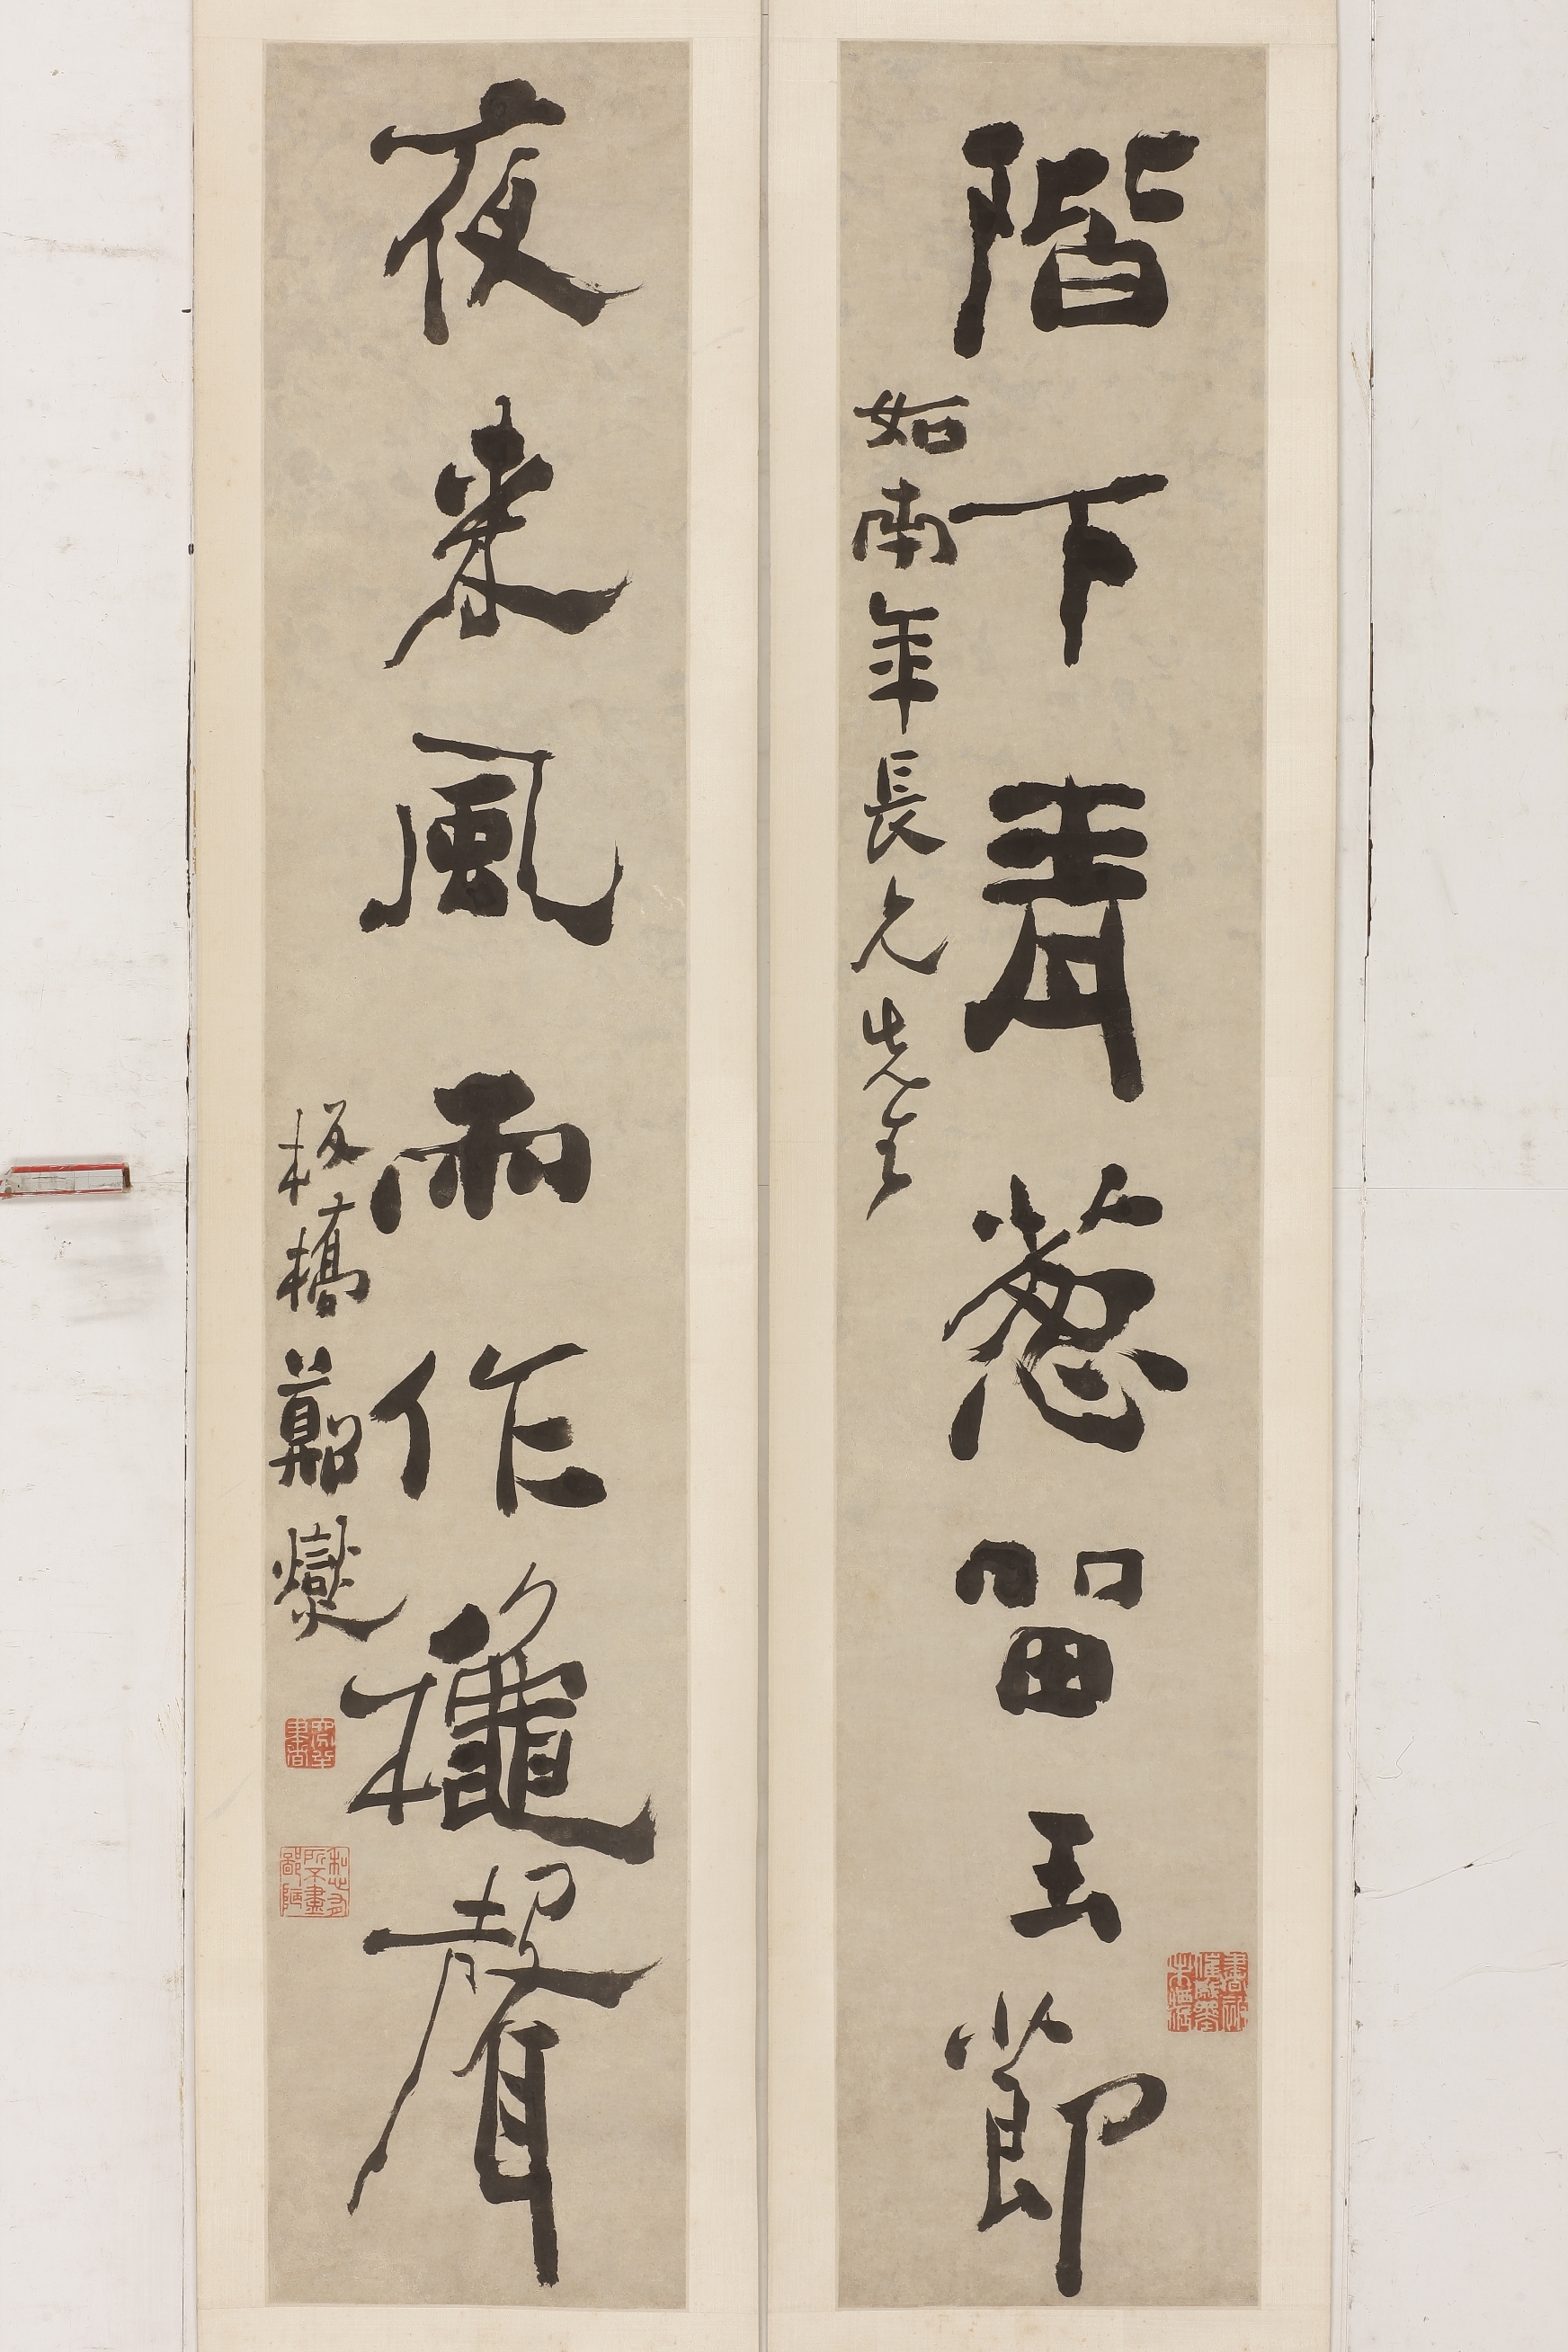 階下青葱留玉節
如南年長兄先生
夜來風雨作龝聲
板橋鄭燮